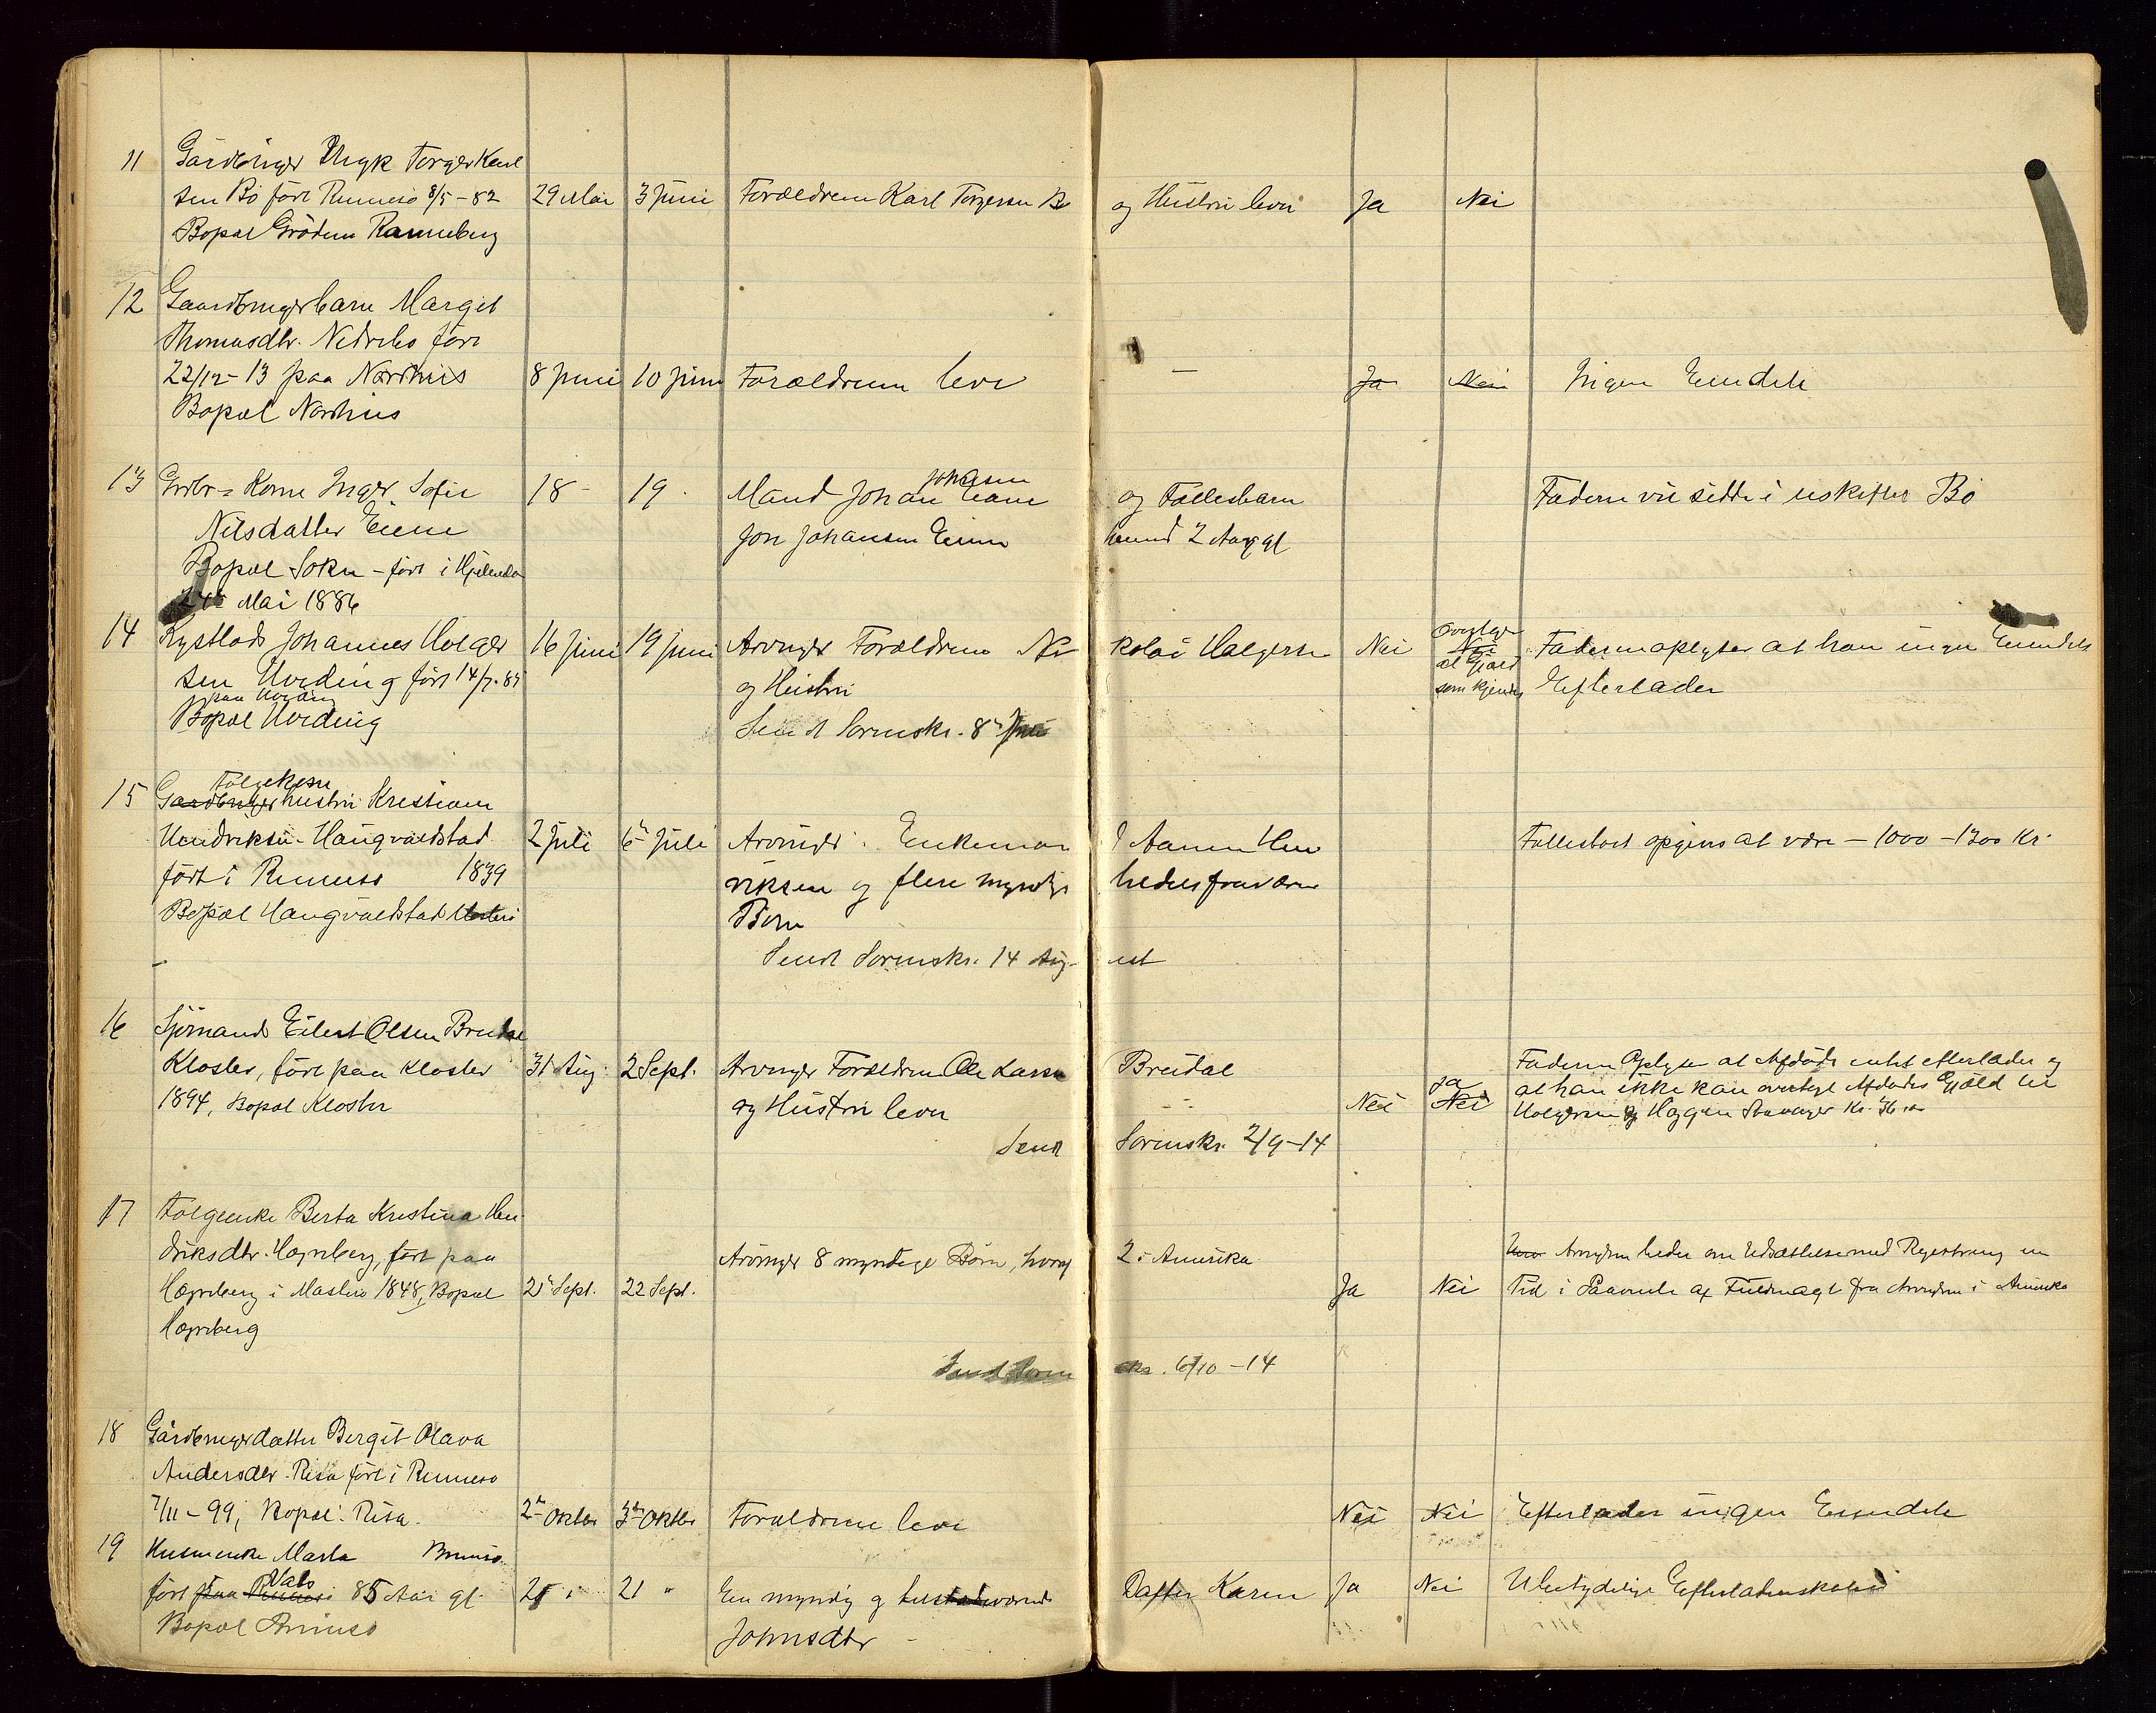 11 Gårdbruger Ungk Torger Karl
sen Bø født Rennesø 8/5-82 29 Mai 3 Juni Forældrene Karl Torgersen Bø og Hustru lever Ja Nei
Bopæl Grødem Randeberg
12 Gaardbrugerbarn Margit
Thomasdtr. Nedrebø født
22/12-13 paa Nordhus 8 Juni 10 Juni Forældrene leve — Ja Nei Ingen Eiendele
Bopæl Nordhus
13 Grdbr= Kone Inger Sofie 18 - 19 - Mand Johan Johansen Eiene og Fællesbarn Faderen vil sidde i uskiftet Bo
Nilsdatter Eiene Jon Johansen Eiene 2 Aar gl
Bopæl Sokn - født i Hjelmeland
24de Mai 1886
14 Kystlods Johannes Holger 16 Juni 19 Juni Arvinger Forældrene Nikolai Holgersen Nei Nei Faderen oplyser at han ingen Eiendele
al Gjæld
sen Hording født 14/7-87 og Hustru som kjendes Efterlader
paa Hording
Bopæl Hording Sendt Sorenskr. 8de Juli
Følgekone
15 Gaardbruger hustru Kristiane
Hendriksen Haugvaldstad 2 Juli 6te Juli Arvinger: Enkemand Aanen Hen Fællesboet opgives at være - 1000 - 1300 Kr.
født i Rennesø 1839 riksen og flere myndige
Bopæl Haugvaldstad Børn
Sendt Sorenskr. 14 August
16 Sjømand Eilert Olsen Breidal
Kloster, født paa Kloster 31 Aug. 2 Sept. Arvinger Forældrene Ole Larsen Breidal Faderen Oplyser at Afdøde intet efterlader og
1894, Bopæl Kloster og Hustru lever Nei ja Nei at han ikke kan overtage Afdødes Gjæld til
Holgersen & Stavanger Kr.
Sendt Sorenskr. 2/9-14
17 Følgeenke Berta Kristina Hen
driksdtr. Hognberg, født paa Arvinger 8 myndige Børn, hvoraf 2 i Amerika Arvingerne beder om Udsættelse med Registrering en
i Mosterø 1848, Bopæl 21de Sept. 22 Sept. Ja Nei Tid i Paavente af Fuldmagt fra Arvingerne i Amerika
Sendt Sorenskr. 6/10-14
18 Gårdbrugerdatter Bergit Olava
Andersdtr. Risa født i Rennesø
7/11-99, Bopæl: Risa. 2den Oktbr 3die Oktbr Forældrene leve Nei Nei Efterlader ingen Eiendele
19 Husmenke Marta Brimsø
født paa Rennesø Vats 85 Aar gl. 21 " 21 " En myndig g Datter Karen Ja Nei Ubetydelige Efterladenskaber
Bopæl Brimsø Johnsdtr